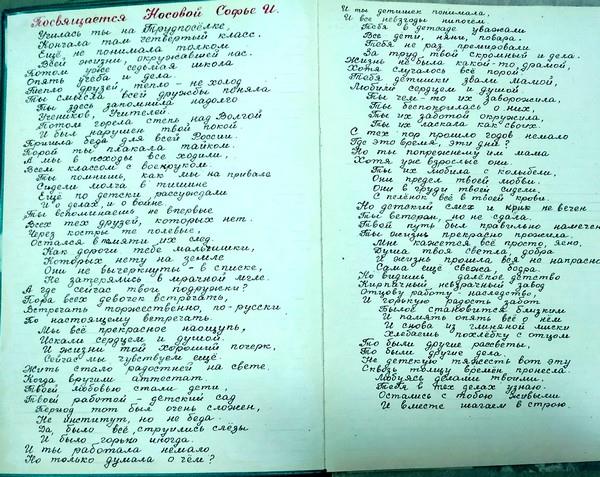 Посвящается Носовой Софье И.
Училась ты на Трудпосёлке,
Кончала там четвёртый класс.
Ещё не понимала толком
Всей жизни, окружавшей нас.
Потом уже седьмая школа
Опять учёба и дела.
Тепло друзей тепло – не холод
Ты смысла всей дружбы поняла
Ты здесь запомнила надолго
Учеников, Учителей.
Потом горела степь над Волгой
И был нарушен твой покой.
Пришла беда для всей России.
Порой ты плакала тайком.
А мы в походы все ходили,
Всем классом с военруком.
Ты помнишь, как мы на привале
Сидели молча в тишине
Ещё по детски рассуждали
И о делах, и о войне.
Ты вспоминаешь не впервые
Всех тех друзей, которых нет.
Через костры те полевые,
Остался в памяти их след.
Как дороги тебе мальчишки,
Которых нету на земле
Они не вычеркнуты – в списке,
Не затерялись в мрачной мгле.
А где сейчас твои подружки?
Пора всех девочек встречать,
Встречать торжественно, по-русски
По настоящему встречать.
Мы всё прекрасное наощупь,
Искали сердцем и душой.
И жизни той хороший почерк,
Сейчас мы чувствуем ещё.
Жить стало радостней на свете.
Когда вручили аттестат.
Твоей любовью стали дети,
Твоей работой – детский сад
Период тот был очень сложен,
Не институт, но не беда.
Да, было всё, струились слёзы
И было горько иногда.
И ты работала немало
Но только думала о чём?
И ты детишек понимала,
И все невзгоды нипочём.
Тебя в детсаде уважали
Все дети, няни, повара.
Тебя не раз премировали
За труд твой скромный и дела.
Жизнь не была какой-то драмой,
Хотя случалось всё порой
Тебя детишки звали мамой,
Любили сердцем и душой.
Ты чем-то их заворожила,
Ты беспокоилась о них,
Ты их заботой окружила,
Ты их ласкала как своих.
С тех пор прошло годов немало
Где это время, эти дни?
Но ты попрежнему их мама
Хотя уж взрослые они.
Ты их любила с колыбели,
Они предел твоей любви.
Они в груди твоей сидели,
С пелёнок всё в твоей крови.
Но детский смех и крик не вечен
Ты ветеран, но не сдала.
Твой путь был правильно намечен
Ты жизнь прекрасно прожила.
Мне кажется всё просто, ясно,
Душа твоя светла, добра
И жизнь прошла вся не напрасно
Сама ещё свежа, бодра.
Но видишь далёкое детство
Кирпичный невзрачный завод
Отцову работу – наследство,
И горькую радость забот
Былое становится близким
И память опять всё о нём
И снова из глиняной миски
Хлебаешь похлёбку с отцом
То были другие рассветы,
То были другие дела.
Не детскую тяжесть вот эту
Сквозь толщу времён пронесла.
Любуясь делами твоими,
Тебя в тех делах узнаю.
Остались с тобою живыми
И вместе шагаем в строю.